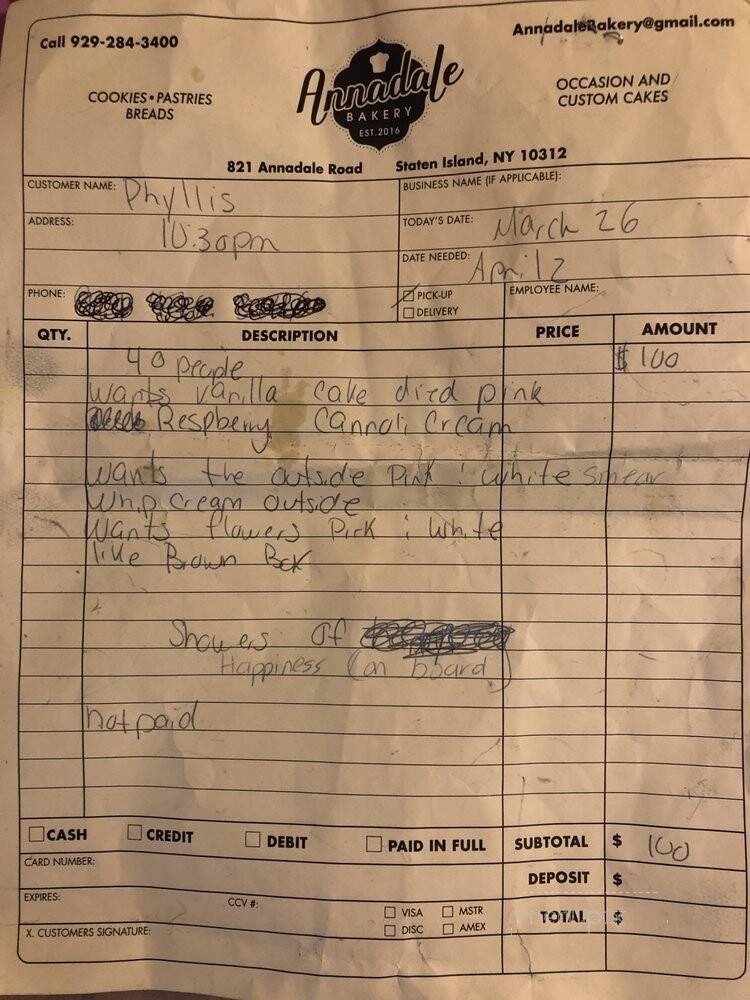 Call 929-284-3400
AnnadaleBakery@gmail.com
COOKIES • PASTRIES
BREADS
Annadale
BAKERY
EST.2016
OCCASION AND
CUSTOM CAKES
821 Annadale Road Staten Island, NY 10312
CUSTOMER NAME: Phyllis
BUSINESS NAME (IF APPLICABLE):
ADDRESS: 10:30pm
TODAY'S DATE: March 26
DATE NEEDED: April 2
PHONE:
PICK-UP
DELIVERY
EMPLOYEE NAME:
QTY. DESCRIPTION PRICE AMOUNT
40 people $100
Wants vanilla cake died pink
Respberry Cannoli Cream
Wants the outside Pink : white smear
Whip cream outside
Wants flowers Pink : White
like Brown Box
Showers of
Happiness (on board)
not paid
CASH CREDIT DEBIT PAID IN FULL SUBTOTAL $ 100
CARD NUMBER:
DEPOSIT $
EXPIRES: CCV #:
VISA MSTR
DISC AMEX
TOTAL $
X. CUSTOMERS SIGNATURE: